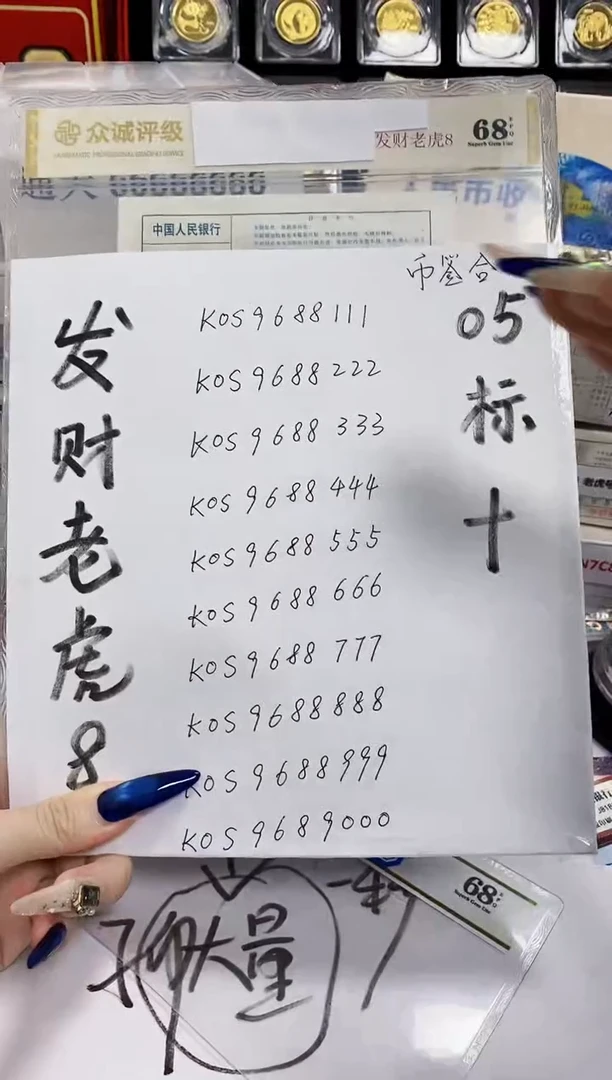 众诚评级
发财老虎8
68
EPQ
Superb Gem Unc
66666666
中国人民银行
币签合
发财老虎8
KOS9688111
KOS9688222
KOS9688333
KOS9688444
KOS9688555
KOS9688666
KOS9688777
KOS9688888
KOS9688999
KOS9689000
05标十
老虎号
N7C8
聊大量
68
EPQ